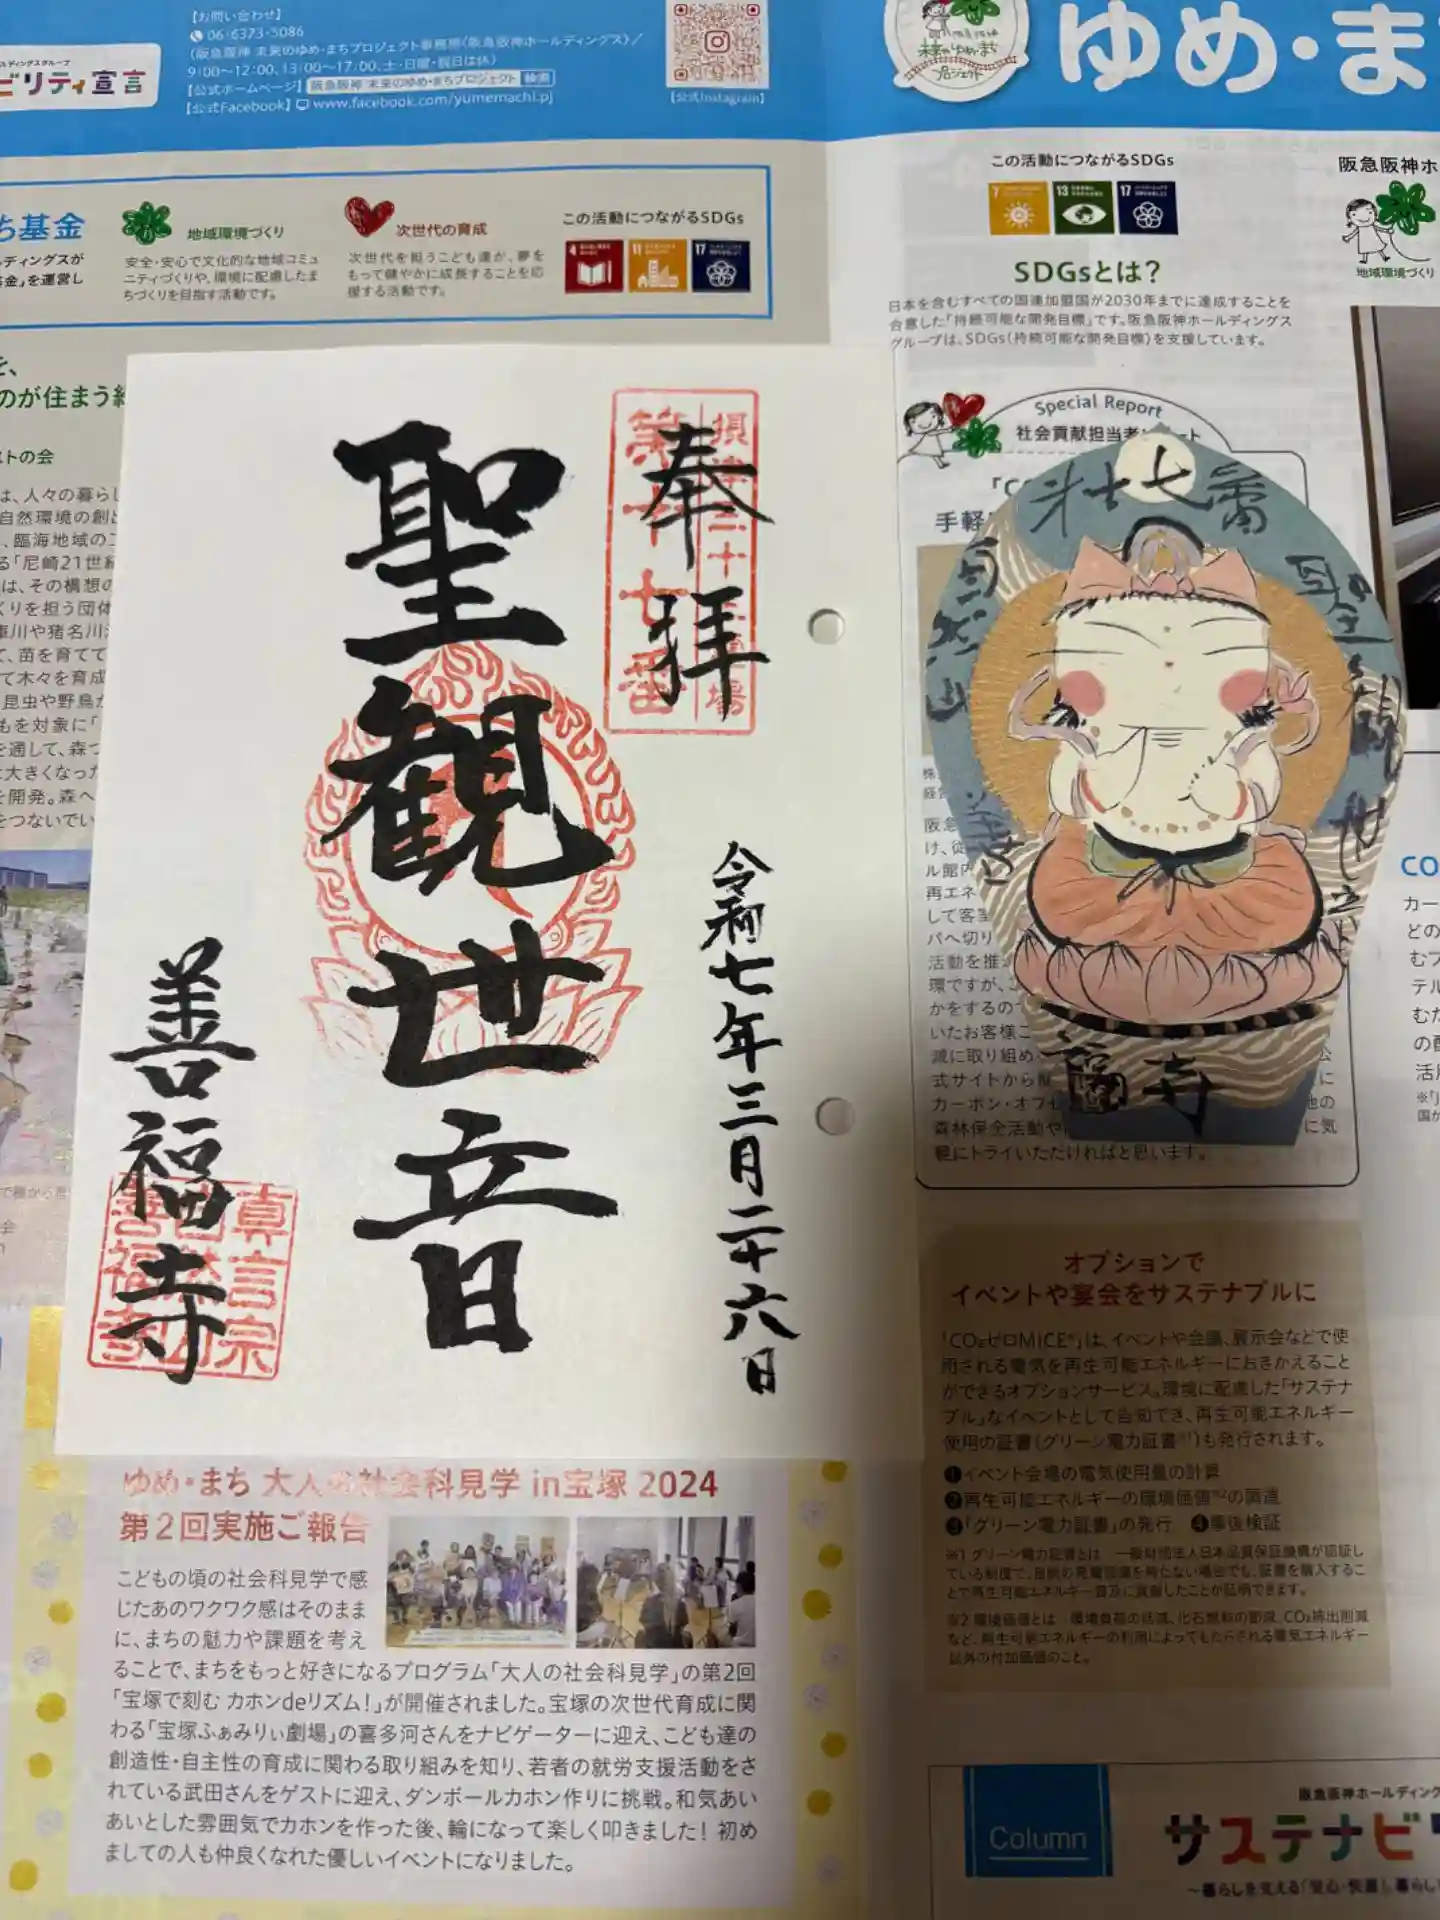 【お問い合わせ】
06-6373-5086
(阪急阪神 未来のゆめ・まちプロジェクト事務局(阪急阪神ホールディングス)/
9:00〜12:00、13:00〜17:00、土・日曜・祝日は休)
【公式ホームページ】阪急阪神 未来のゆめ・まちプロジェクト 検索
【公式Facebook】www.facebook.com/yumemachi.pj
【公式Instagram】
ビリティ宣言
ゆめ・ま
未来のゆめ・まち
プロジェクト
ち基金
ールディングスが
基金」を運営し
地域環境づくり
安全・安心で文化的な地域コミュ
ニティづくりや、環境に配慮したま
ちづくりを目指す活動です。
次世代の育成
次世代を担うこども達が、夢を
もって健やかに成長することを応
援する活動です。
この活動につながるSDGs
4
11
17
この活動につながるSDGs
7
13
17
阪急阪神ホ
地域環境づくり
SDGsとは?
日本を含むすべての国連加盟国が2030年までに達成することを
合意した「持続可能な開発目標」です。阪急阪神ホールディングス
グループは、SDGs(持続可能な開発目標)を支援しています。
Special Report
社会貢献担当者
手軽
のが住まう
トの会
は、人々の暮らし
自然環境の創出
、臨海地域の
る「尼崎21世紀
は、その構想の
くりを担う団体
庫川や猪名川
て、苗を育てて
て木々を育成
昆虫や野鳥が
もを対象に「
を通して、森づ
に大きくなった
を開発。森へ
をつないでい
奉拝
摂津三十三霊場
第十七番
聖観世音
令和七年三月二十六日
善福寺
真言宗
善福寺
七番
福寺
阪急
ル館内
再エネ
して客室
パへ切り
活動を推
環ですが、
かをするの
いたお客様
減に取り組め
式サイトから
カーボン・オフセ
森林保全活動や
軽にトライいただければと思います。
CO
カー
どの
むプ
テル
むた
の酉
活用
オプションで
イベントや宴会をサステナブルに
「CO₂ゼロMICE®」は、イベントや会議、展示会などで使
用される電気を再生可能エネルギーにおきかえること
ができるオプションサービス。環境に配慮した「サステナ
ブル」なイベントとして告知でき、再生可能エネルギー
使用の証書(グリーン電力証書※1)も発行されます。
❶イベント会場の電気使用量の計算
❷再生可能エネルギーの環境価値※2の調達
❸「グリーン電力証書」の発行 ❹事後検証
※1 グリーン電力証書とは 一般財団法人日本品質保証機構が認証し
ている制度で、自前の発電設備を持たない場合でも、証書を購入するこ
とで再生可能エネルギー普及に貢献したことが証明できます。
※2 環境価値とは 環境負荷の低減、化石燃料の節減、CO₂排出削減
など、再生可能エネルギーの利用によってもたらされる電気エネルギー
以外の付加価値のこと。
ゆめ・まち 大人の社会科見学 in宝塚 2024
第2回実施ご報告
こどもの頃の社会科見学で感
じたあのワクワク感はそのまま
に、まちの魅力や課題を考え
ることで、まちをもっと好きになるプログラム「大人の社会科見学」の第2回
「宝塚で刻む カホンdeリズム!」が開催されました。宝塚の次世代育成に関
わる「宝塚ふぁみりぃ劇場」の喜多河さんをナビゲーターに迎え、こども達の
創造性・自主性の育成に関わる取り組みを知り、若者の就労支援活動をさ
れている武田さんをゲストに迎え、ダンボールカホン作りに挑戦。和気あい
あいとした雰囲気でカホンを作った後、輪になって楽しく叩きました! 初め
ましての人も仲良くなれた優しいイベントになりました。
Column
阪急阪神ホールディング
サステナビ
〜暮らしを支える「安心・快適」、暮らし